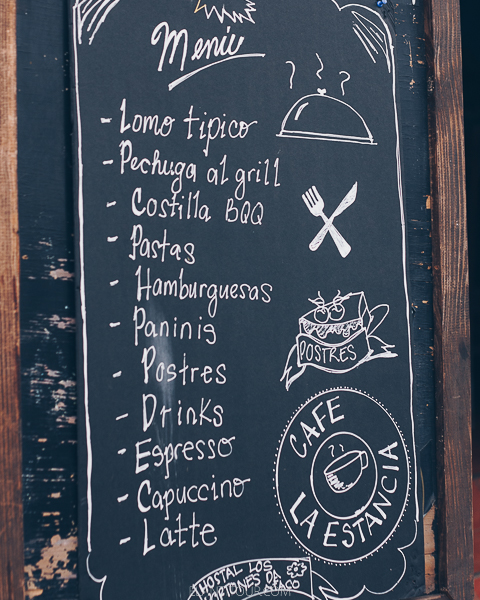 Menú
- Lomo tipico
- Pechuga al grill
- Costilla BQQ
- Pastas
- Hamburguesas
- Paninis
- Postres
- Drinks
- Espresso
- Capuccino
- Latte
POSTRES
CAFE
LA ESTANCIA
HOSTAL LOS
PORTONES DE
ATACO